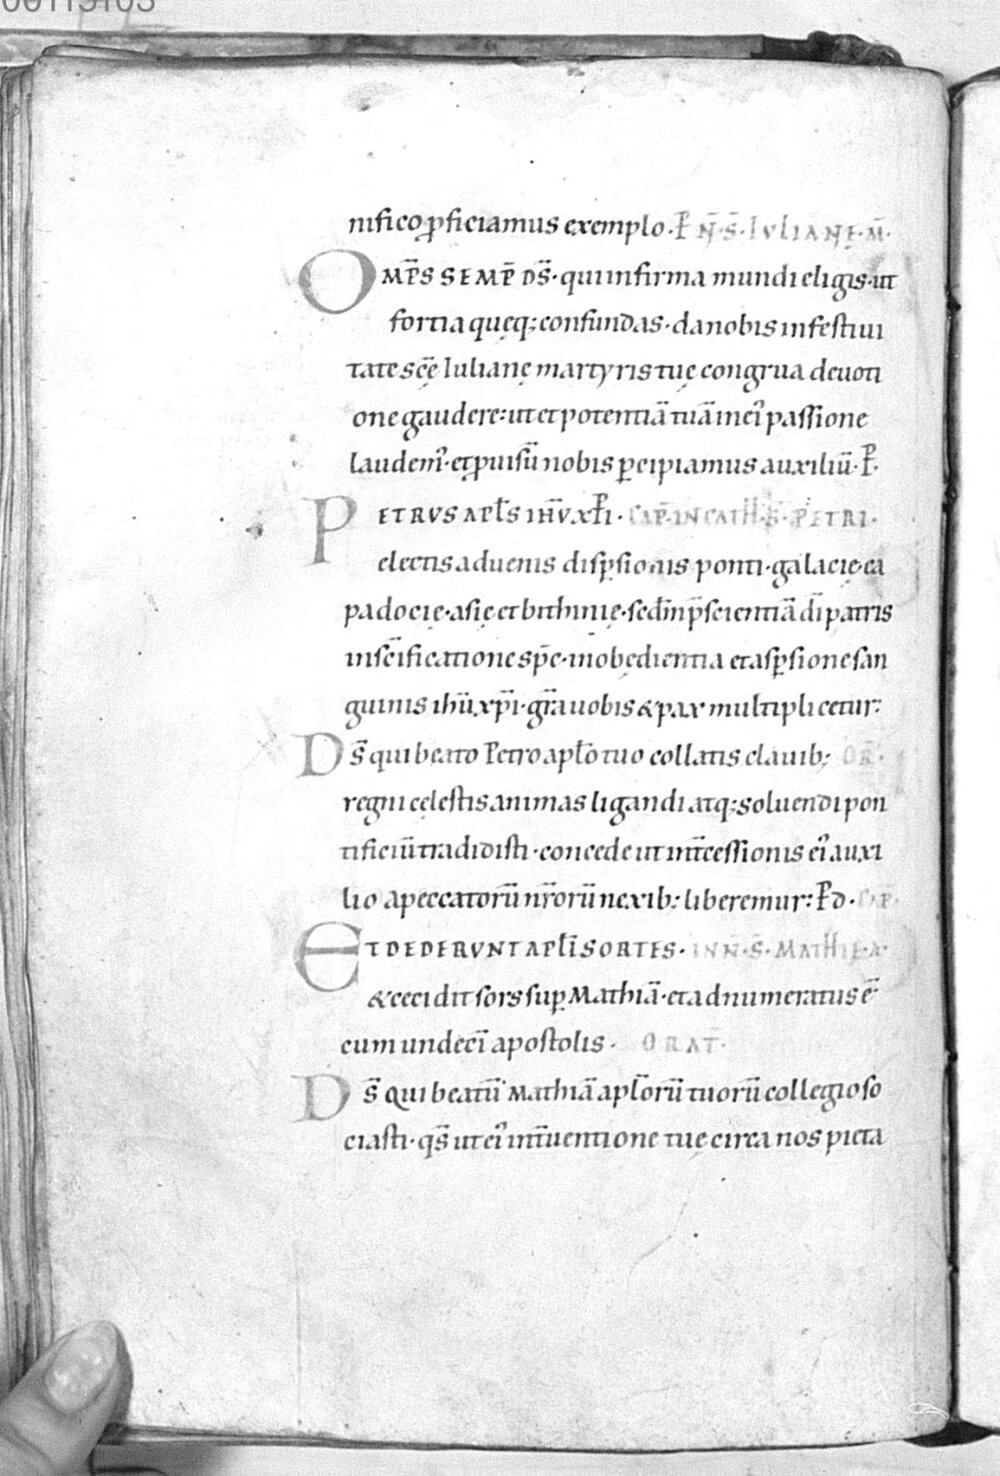 nifico ꝓficiamus exemplo. P̄ N̄. S̄. IVLIANĘ. M̄.
OMP̄S SEMP̄ DS̄. qui infirma mundi eligis. ut
fortia quęq; confundas. da nobis in festiui
tate sc̄ę Iulianę martyris tuę congrua deuoti
one gaudere: ut et potentiā tuā in ei᾽ passione
laudem᾽. et ꝓuisū nobis ꝑcipiamus auxiliū. P̄.
PETRVS APL̄S IH̄V XP̄I. CAP̄. IN CATH̄. S̄. PETRI.
electis aduenis disꝑsionis ponti. galacię. ca
padocię. asię et bithinię. sed̄m p̄scientiā dī patris
in sc̄ificatione sp̄c. in obędientia et asꝑsione san
guinis ihū xp̄i. gr̄a uobis & pax multiplicetur:
DS̄ qui beato Petro apl̄o tuo collatis clauib; OR̄.
regni cęlestis animas ligandi atq; soluendi pon
tificiū tradidisti. concede ut int̄cessionis ei᾽ auxi
lio a peccatorū nr̄orū nexib; liberemur: P̄ d. CAP̄.
ET DEDERVNT APL̄I SORTES. IN N̄. S̄. MATHIĘ. A.
& cecidit sors suꝑ Mathiā. et adnumeratus ē
cum undecī apostolis. ORAT̄.
DS̄ qui beatū Mathiā apl̄orū tuorū collegio so
ciasti. qs̄ ut ei᾽ int̄uentione tuę circa nos pieta